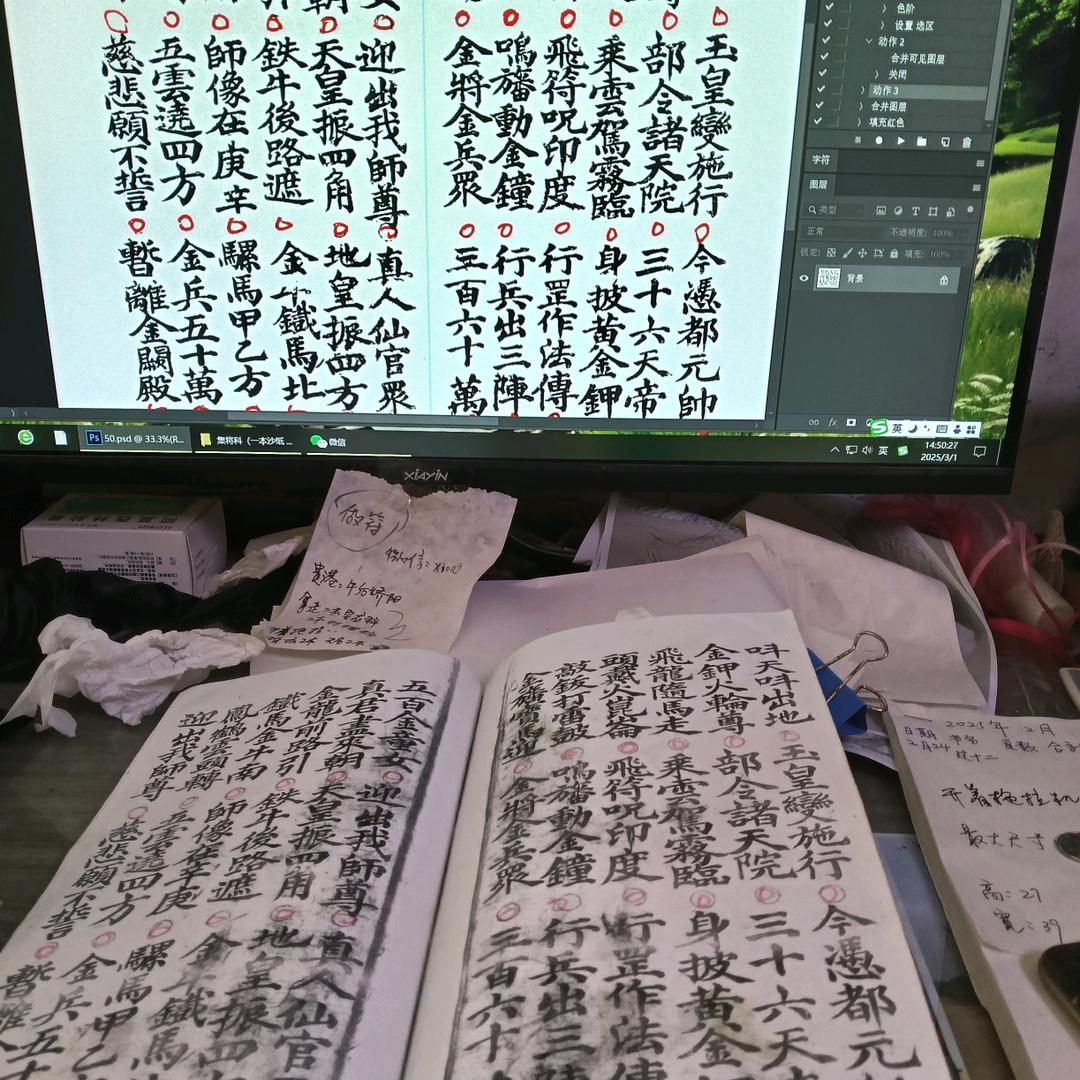 玉皇變施行○今憑都元帥
部令諸天院○三十六天帝
乘雲駕霧臨○身披黃金鉀
飛符呪印度○行罡作法傳
鳴旛動金鐘○行兵出三陣
金將金兵眾○三百六十萬
迎出我師尊○真人仙官眾
天皇振四角○地皇振四方
鉄牛後路遮○金牛鐵馬北
師像在庚辛○騾馬甲乙方
五雲遶四方○金兵五十萬
慈悲願不誓○暫離金闕殿
色阶
设置 选区
动作 2
合并可见图层
关闭
动作 3
合并图层
填充红色
字符
图层
类型
正常
不透明度: 100%
锁定:
填充: 100%
背景
50.psd @ 33.3%(R...
集将科（一本沙纸 ...
微信
英
英
14:50:27
2025/3/1
XIAYIN
做符
微信:
贵港:
吽天吽出地○玉皇變施行○今憑都元
金鉀火輪尊○部令諸天院○三十六天
飛龍隨馬走○乘雲駕霧臨○身披黃金
頭戴火崑崙○飛符呪印度○行罡作法傳
敲鈸打雷皷○鳴旛動金鐘○行兵出三陣
金將金兵眾○三百六十
五百金童女○迎出我師尊○真人仙官
真君盡來朝○天皇振四角○地皇振四
金龍前路引○鉄牛後路遮○金牛鐵馬
鐵馬金牛南○師像在辛庚○騾馬甲乙
鳳鶴雲頭轉○五雲遶四方○金兵五十
迎出我師尊○慈悲願不誓○暫離
2025年2月
日期 书名 页数
2月24
最大尺寸
高: 27
宽: 39